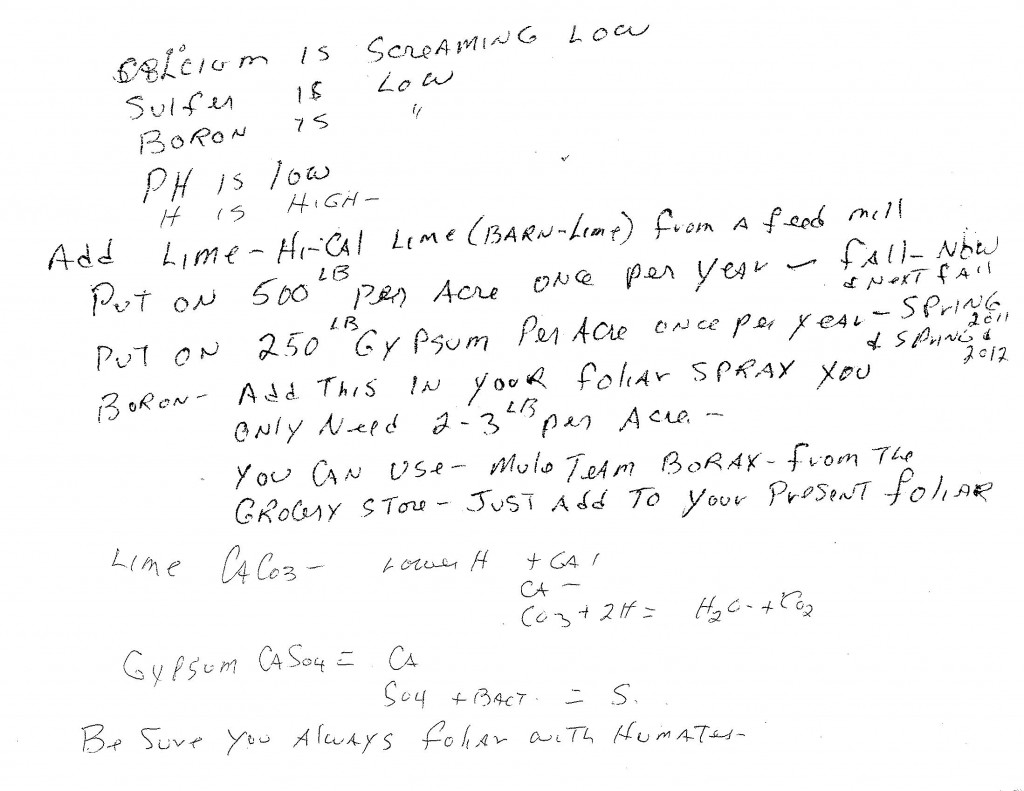 CALCIUM IS SCREAMING LOW
Sulfer IS Low
BORON IS "
PH IS low
H IS HIGH-
Add Lime - Hi-CAl Lime (BARN-Lime) from A feed mill
PuT ON 500 LB per Acre ONCe per yeAr - fAll- Now
& NexT fAll
PuT ON 250 LB Gypsum Per Acre ONCe per yeAr - SPrING 2011
& SPrING 2012
BORON- Add This IN YouR foliAr SPRAY You
ONly Need 2-3 LB per Acre -
You CAN Use - Mule TeAm BORAX - from The
GROCery STore - JUST Add To Your PreSeNT foliAR
Lime CACO3 - Lower H + CAl
CA -
CO3 + 2H = H2O + CO2
Gypsum CASO4 = CA
SO4 + BACT. = S.
Be Sure You AlwAys foliAr wiTh HumATes-